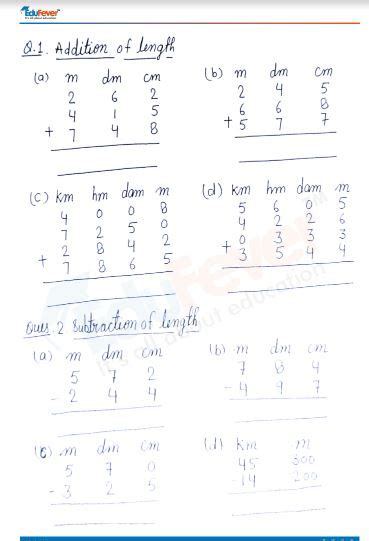 EduFever
It's all about education
Q.1. Addition of length
(a) m dm cm
2 6 2
4 1 5
+ 7 4 8
(b) m dm cm
2 4 5
6 6 8
+ 5 7 7
(c) km hm dam m
4 0 0 8
7 2 5 0
2 8 4 2
+ 7 8 6 5
(d) km hm dam m
5 6 0 5
4 2 2 6
0 3 3 3
+ 3 5 4 4
EduFever
It's all about education
TM
Ques. 2 Subtraction of length
(a) m dm cm
5 7 2
- 2 4 4
(b) m dm cm
7 8 4
- 4 9 7
(c) m dm cm
5 7 0
- 3 2 5
(d) Km m
45 600
- 14 200